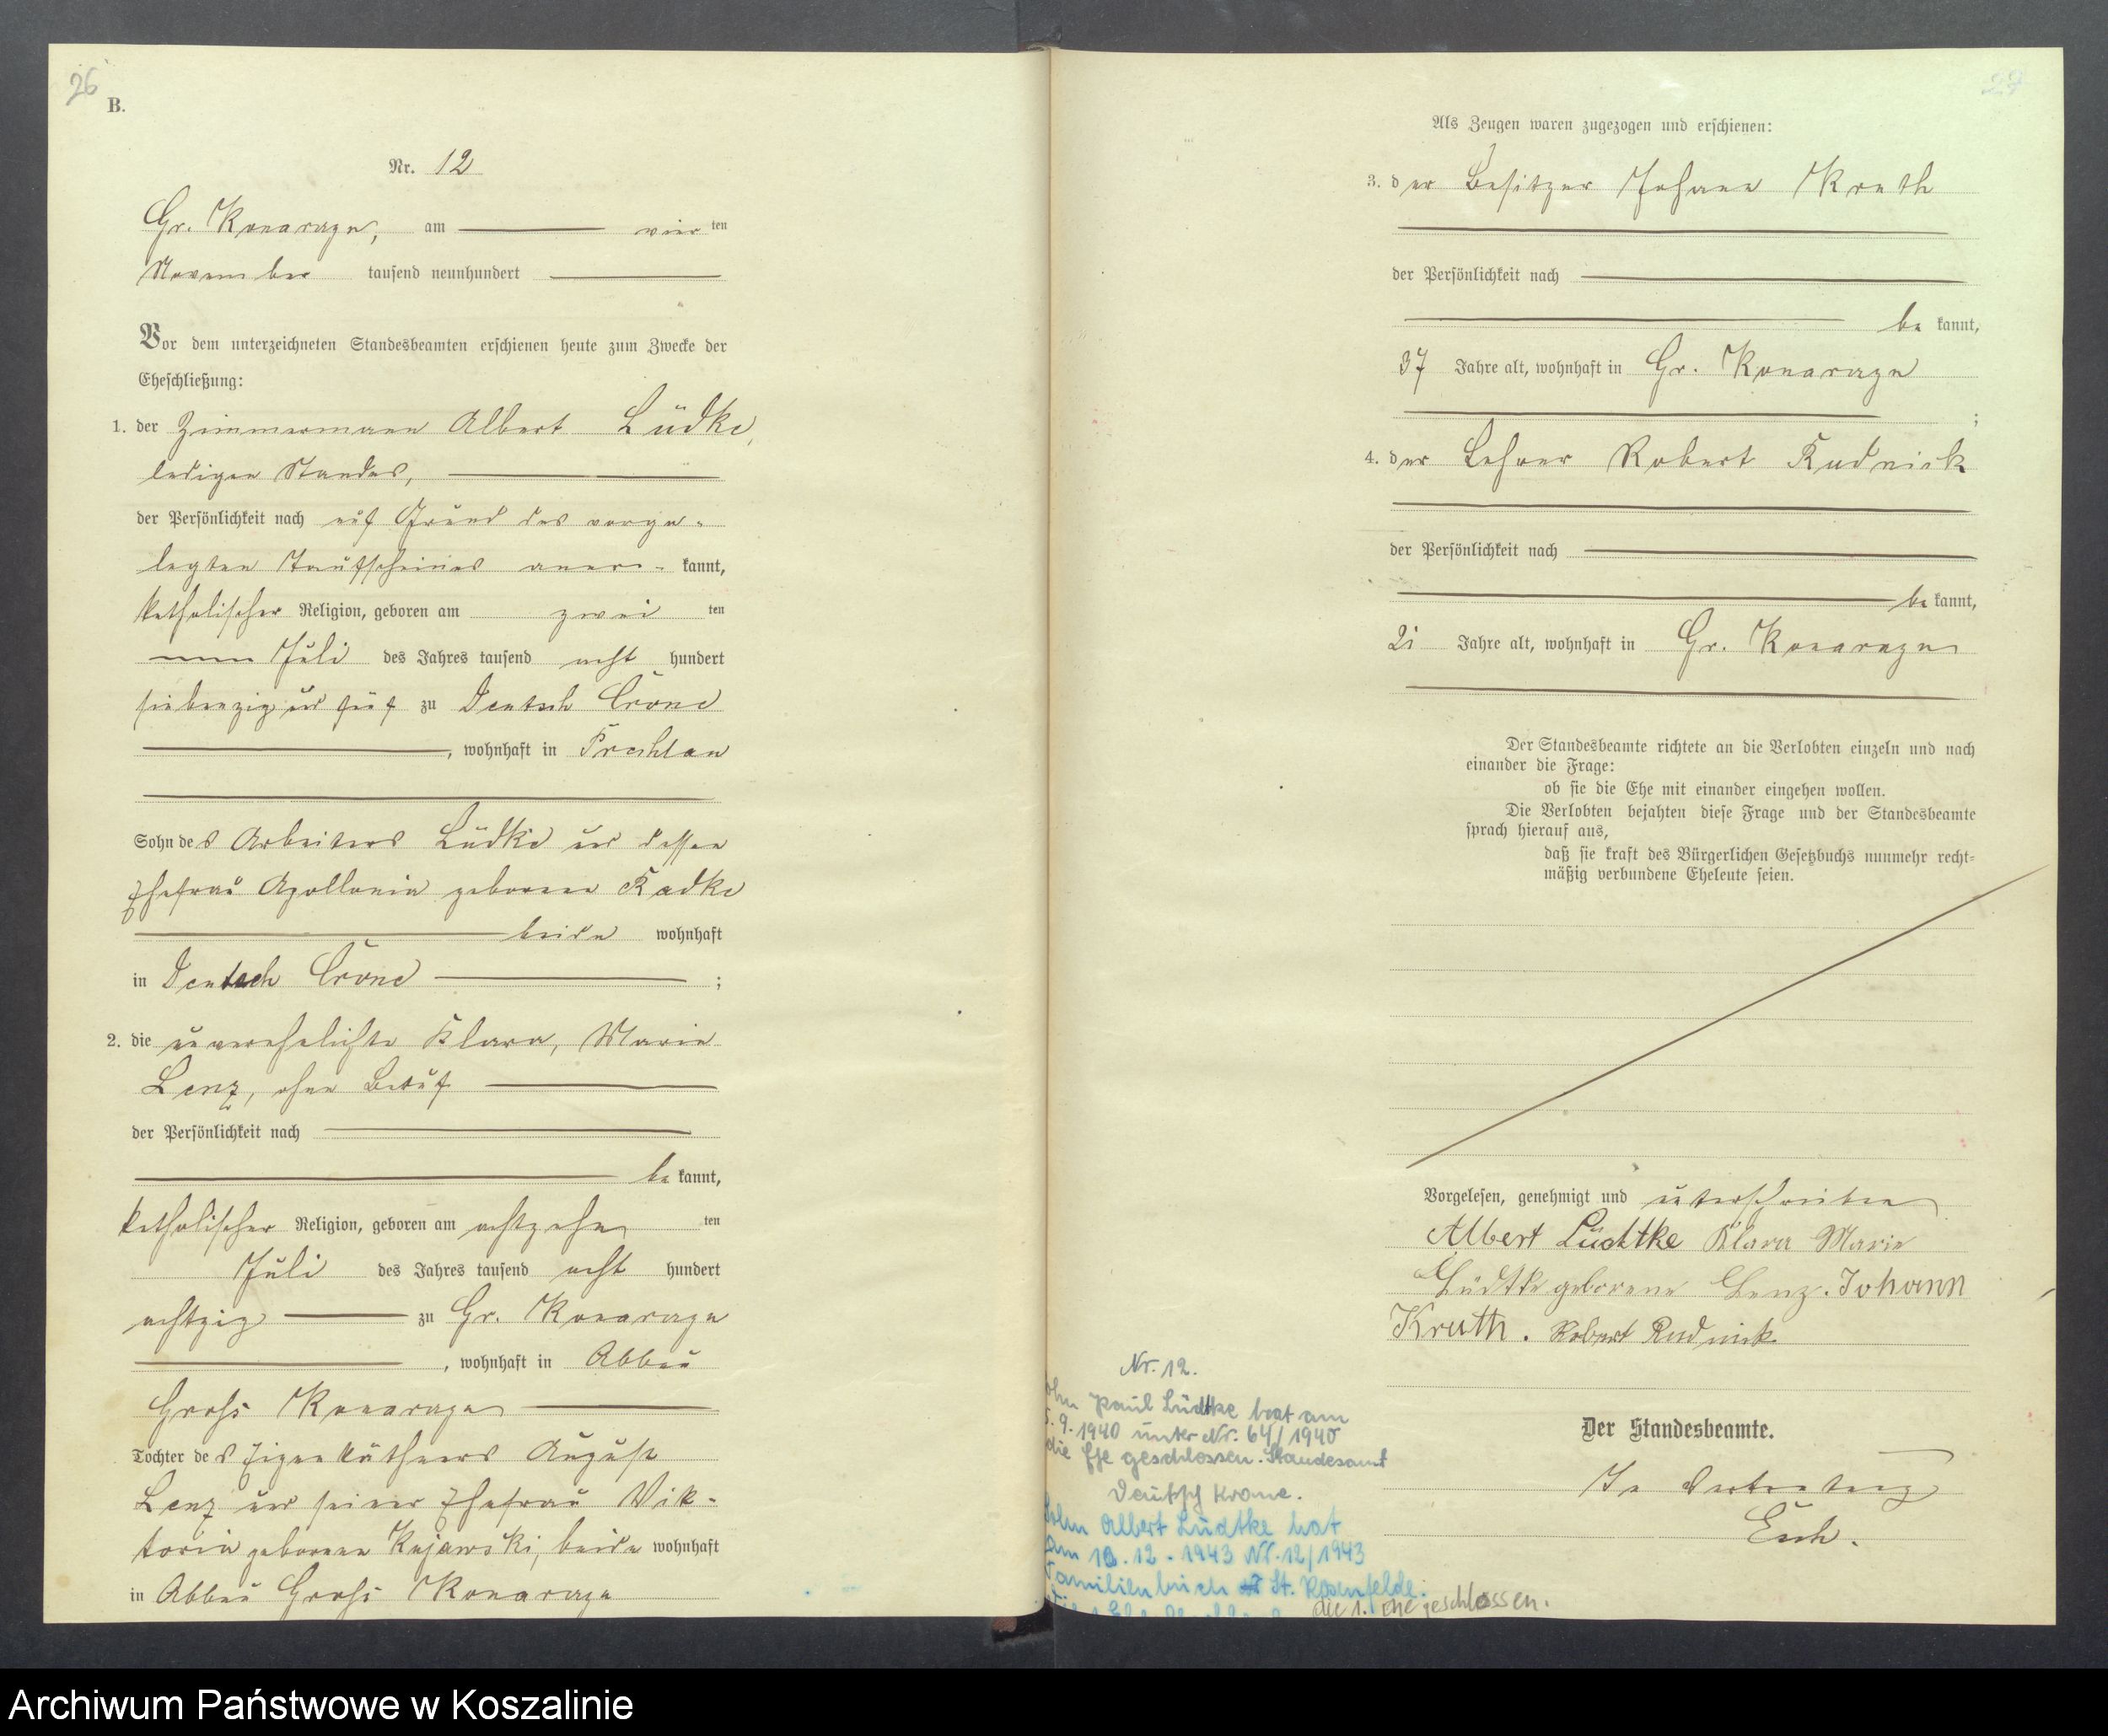 26
B.
Nr. 12
Gr. Konarzyn, am vier ten
November tausend neunhundert
Vor dem unterzeichneten Standesbeamten erschienen heute zum Zwecke der
Eheschließung:
1. der Zimmermann Albert Lüdke,
ledigen Standes,
der Persönlichkeit nach auf Grund des vorge-
legten Taufscheines aner- kannt,
katholischer Religion, geboren am zwei ten
Juli des Jahres tausend acht hundert
siebenzig und fünf zu Deutsch Crone
, wohnhaft in Prechlau
Sohn des Arbeiters Lüdke und dessen
Ehefrau Apollonia geborene Radke
beide wohnhaft
in Deutsch Crone ;
2. die unverehelichte Klara, Marie
Lenz, ohne Beruf
der Persönlichkeit nach
be kannt,
katholischer Religion, geboren am achtzehn ten
Juli des Jahres tausend acht hundert
achtzig zu Gr. Konarzyn
, wohnhaft in Abbau
Groß Konarzyn
Tochter des Eigenkäthners August
Lenz und seiner Ehefrau Vik-
toria geborene Kujawski, beide wohnhaft
in Abbau Groß Konarzyn
27
Als Zeugen waren zugezogen und erschienen:
3. der Besitzer Johann Kruth
der Persönlichkeit nach
be kannt,
37 Jahre alt, wohnhaft in Gr. Konarzyn
;
4. der Lehrer Robert Rudnick
der Persönlichkeit nach
be kannt,
21 Jahre alt, wohnhaft in Gr. Konarzyn
Der Standesbeamte richtete an die Verlobten einzeln und nach
einander die Frage:
ob sie die Ehe mit einander eingehen wollen.
Die Verlobten bejahten diese Frage und der Standesbeamte
sprach hierauf aus,
daß sie kraft des Bürgerlichen Gesetzbuchs nunmehr recht-
mäßig verbundene Eheleute seien.
Vorgelesen, genehmigt und unterschrieben
Albert Lüdtke Klara Marie
Lüdtke geborene Lenz. Johann
Kruth. Robert Rudnick
Der Standesbeamte.
In Vertretung
Esch.
Nr. 12.
ohn Paul Lüdtke hat am
5. 9. 1940 unter Nr. 64/1940
die Ehe geschlossen. Standesamt
Deutsch Krone.
Sohn Albert Lüdtke hat
am 12. 1943 Nr. 12/1943
Familienbuch St. Rosenfelde.
die 1. Ehe geschlossen.
Archiwum Państwowe w Koszalinie